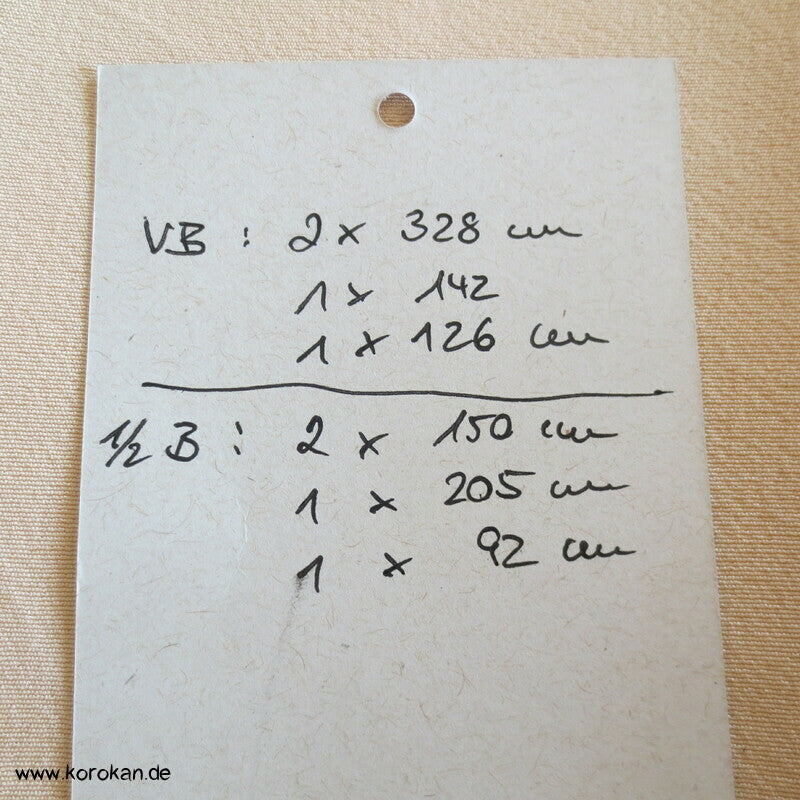 VB : 2 x 328 cm
1 x 142
1 x 126 cm
1/2 B : 2 x 150 cm
1 x 205 cm
1 x 92 cm
www.korokan.de